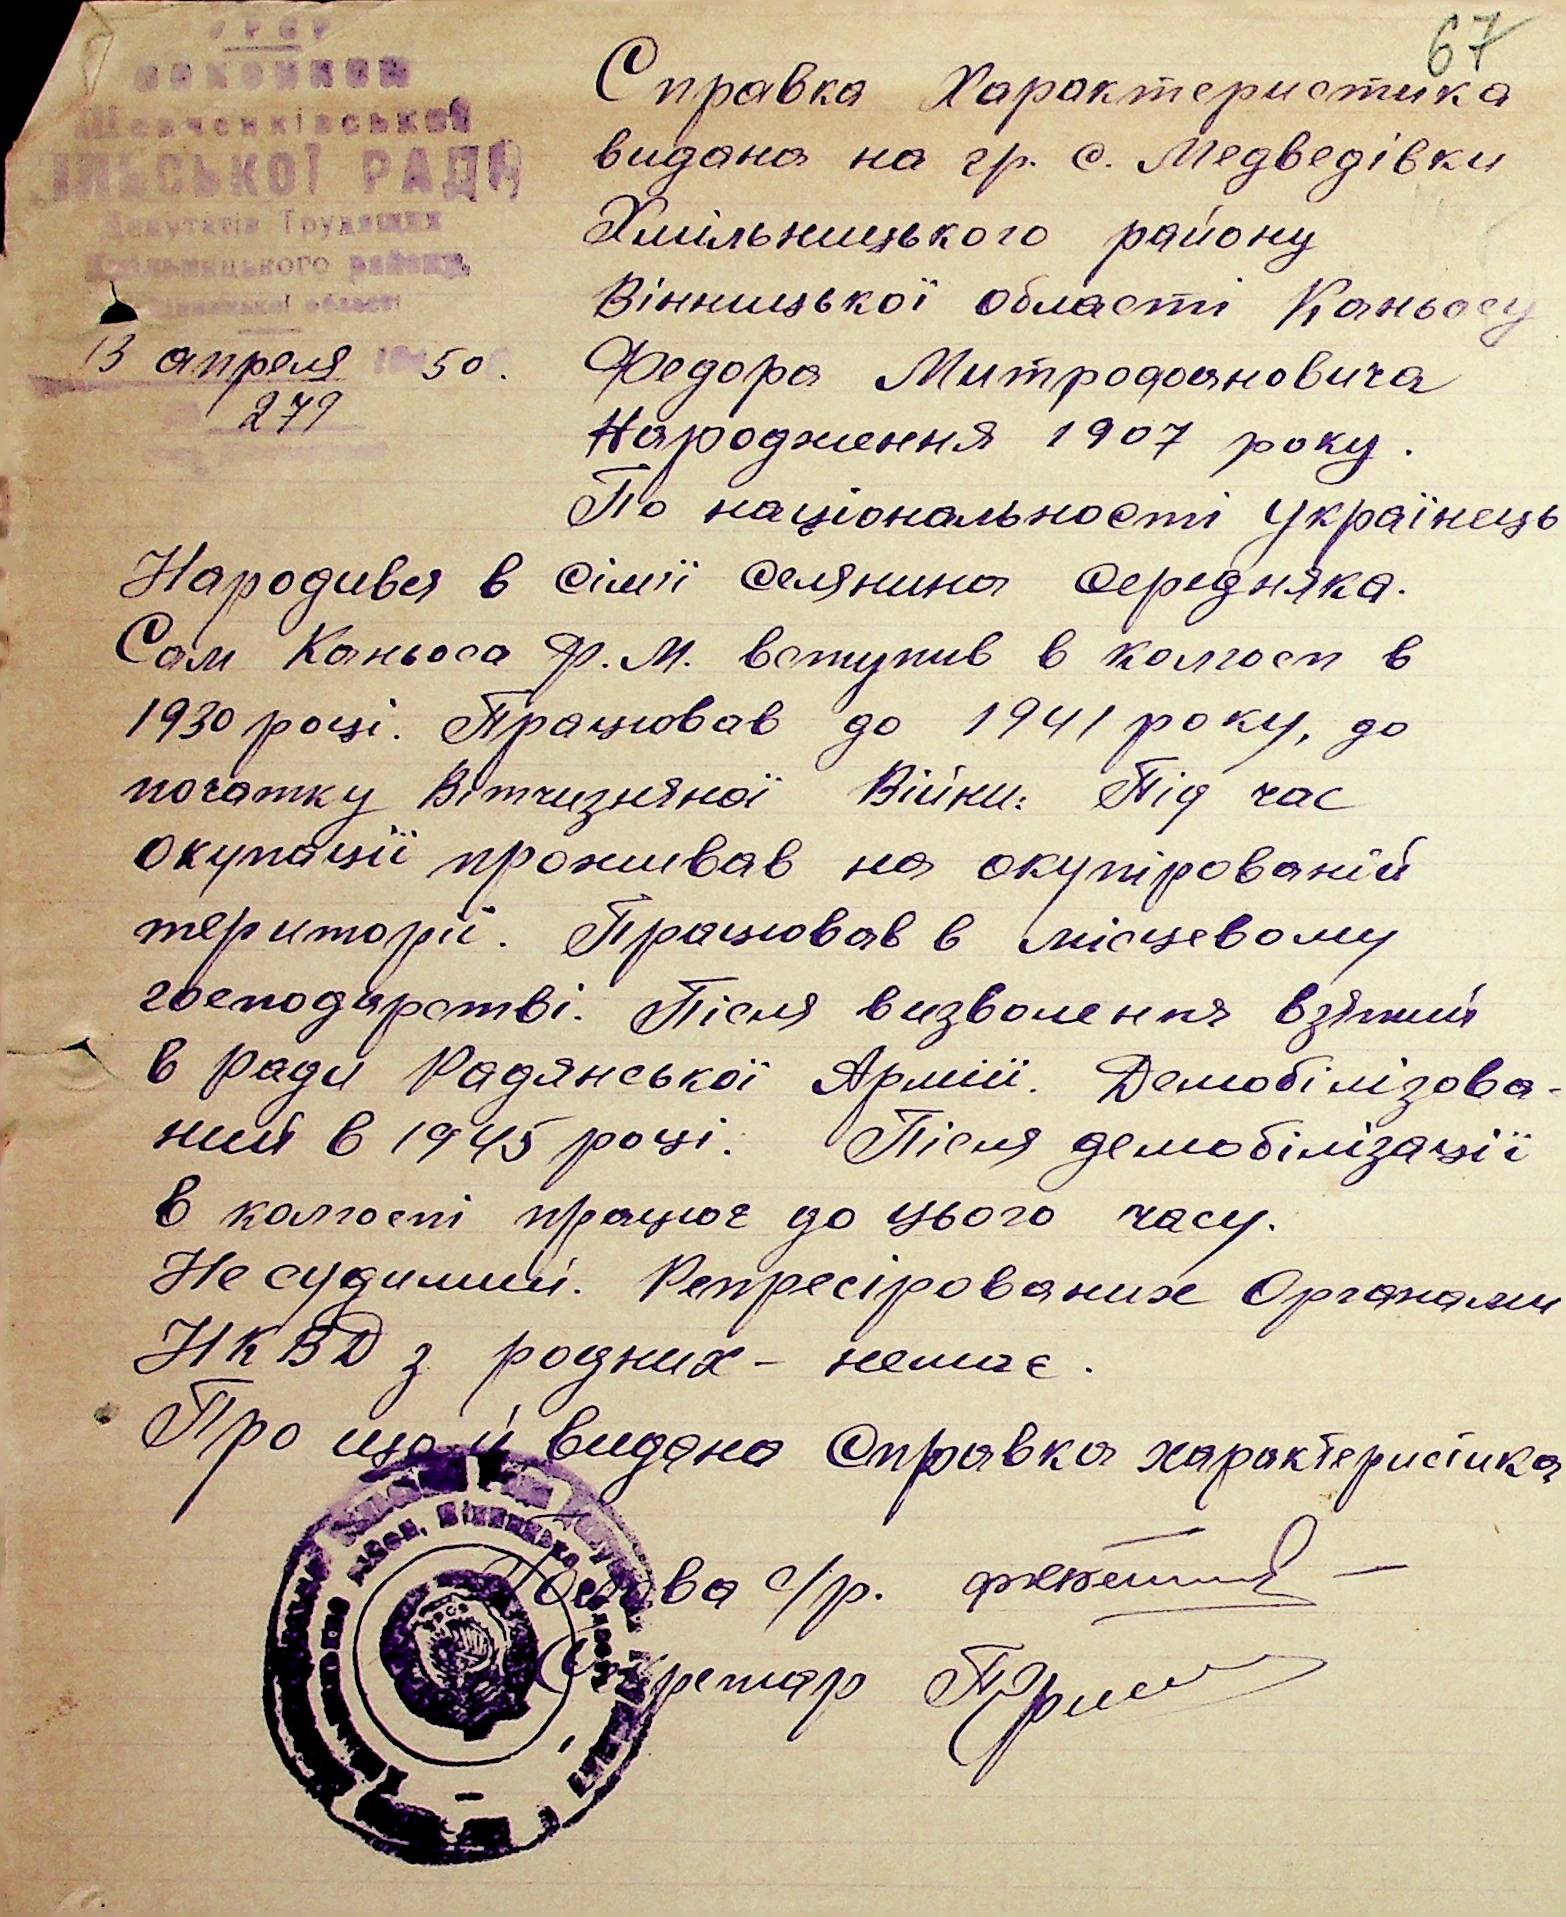 67
УРСР
ВИКОНКОМ
Шевченківської
СІЛЬСЬКОЇ РАДИ
Депутатів Трудящих
Хмільницького району,
Вінницької області
13 апреля 1950.
279
Справка Характеристика
видана на гр. с. Медведівки
Хмільницького району
Вінницької области Каньосу
Федора Митрофановича
Народження 1907 року.
По національності Українець
Народився в сімії селянина середняка.
Сам Каньоса Ф.М. вступив в колгосп в
1930 році. Працював до 1941 року, до
початку Вітчизняної Війни. Під час
окупації проживав на окупірованій
території. Працював в місцевому
господарстві. Після визволення взятий
в ряди Радянської Армії. Демобілізова-
ний в 1945 році. Після демобілізації
в колгоспі працює до цього часу.
Не судимий. Репресірованих Органами
НКВД з родних - немає.
Про що й видана Справка характеристика
Голова с/р.
Секретар